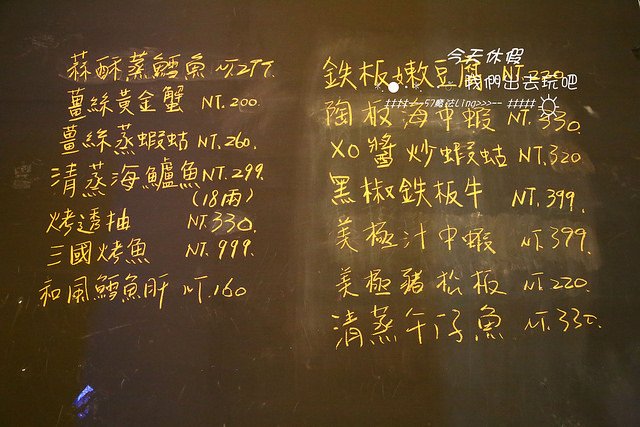 蒜酥蒸鱈魚 NT.299.
薑絲黃金蟹 NT.200.
薑絲蒸蝦蛄 NT.260.
清蒸海鱸魚 NT.299.
(18兩)
烤透抽 NT.330.
三國烤魚 NT.999.
和風鱈魚肝 NT.160
鉄板嫩豆腐 NT.220
陶板海中蝦 NT.330.
XO醬炒蝦蛄 NT.320
黑椒鉄板牛 NT.399.
美極汁中蝦 NT.399
美極豬松板 NT.220.
清蒸午仔魚 NT.330.
今天休假
我們出去玩吧